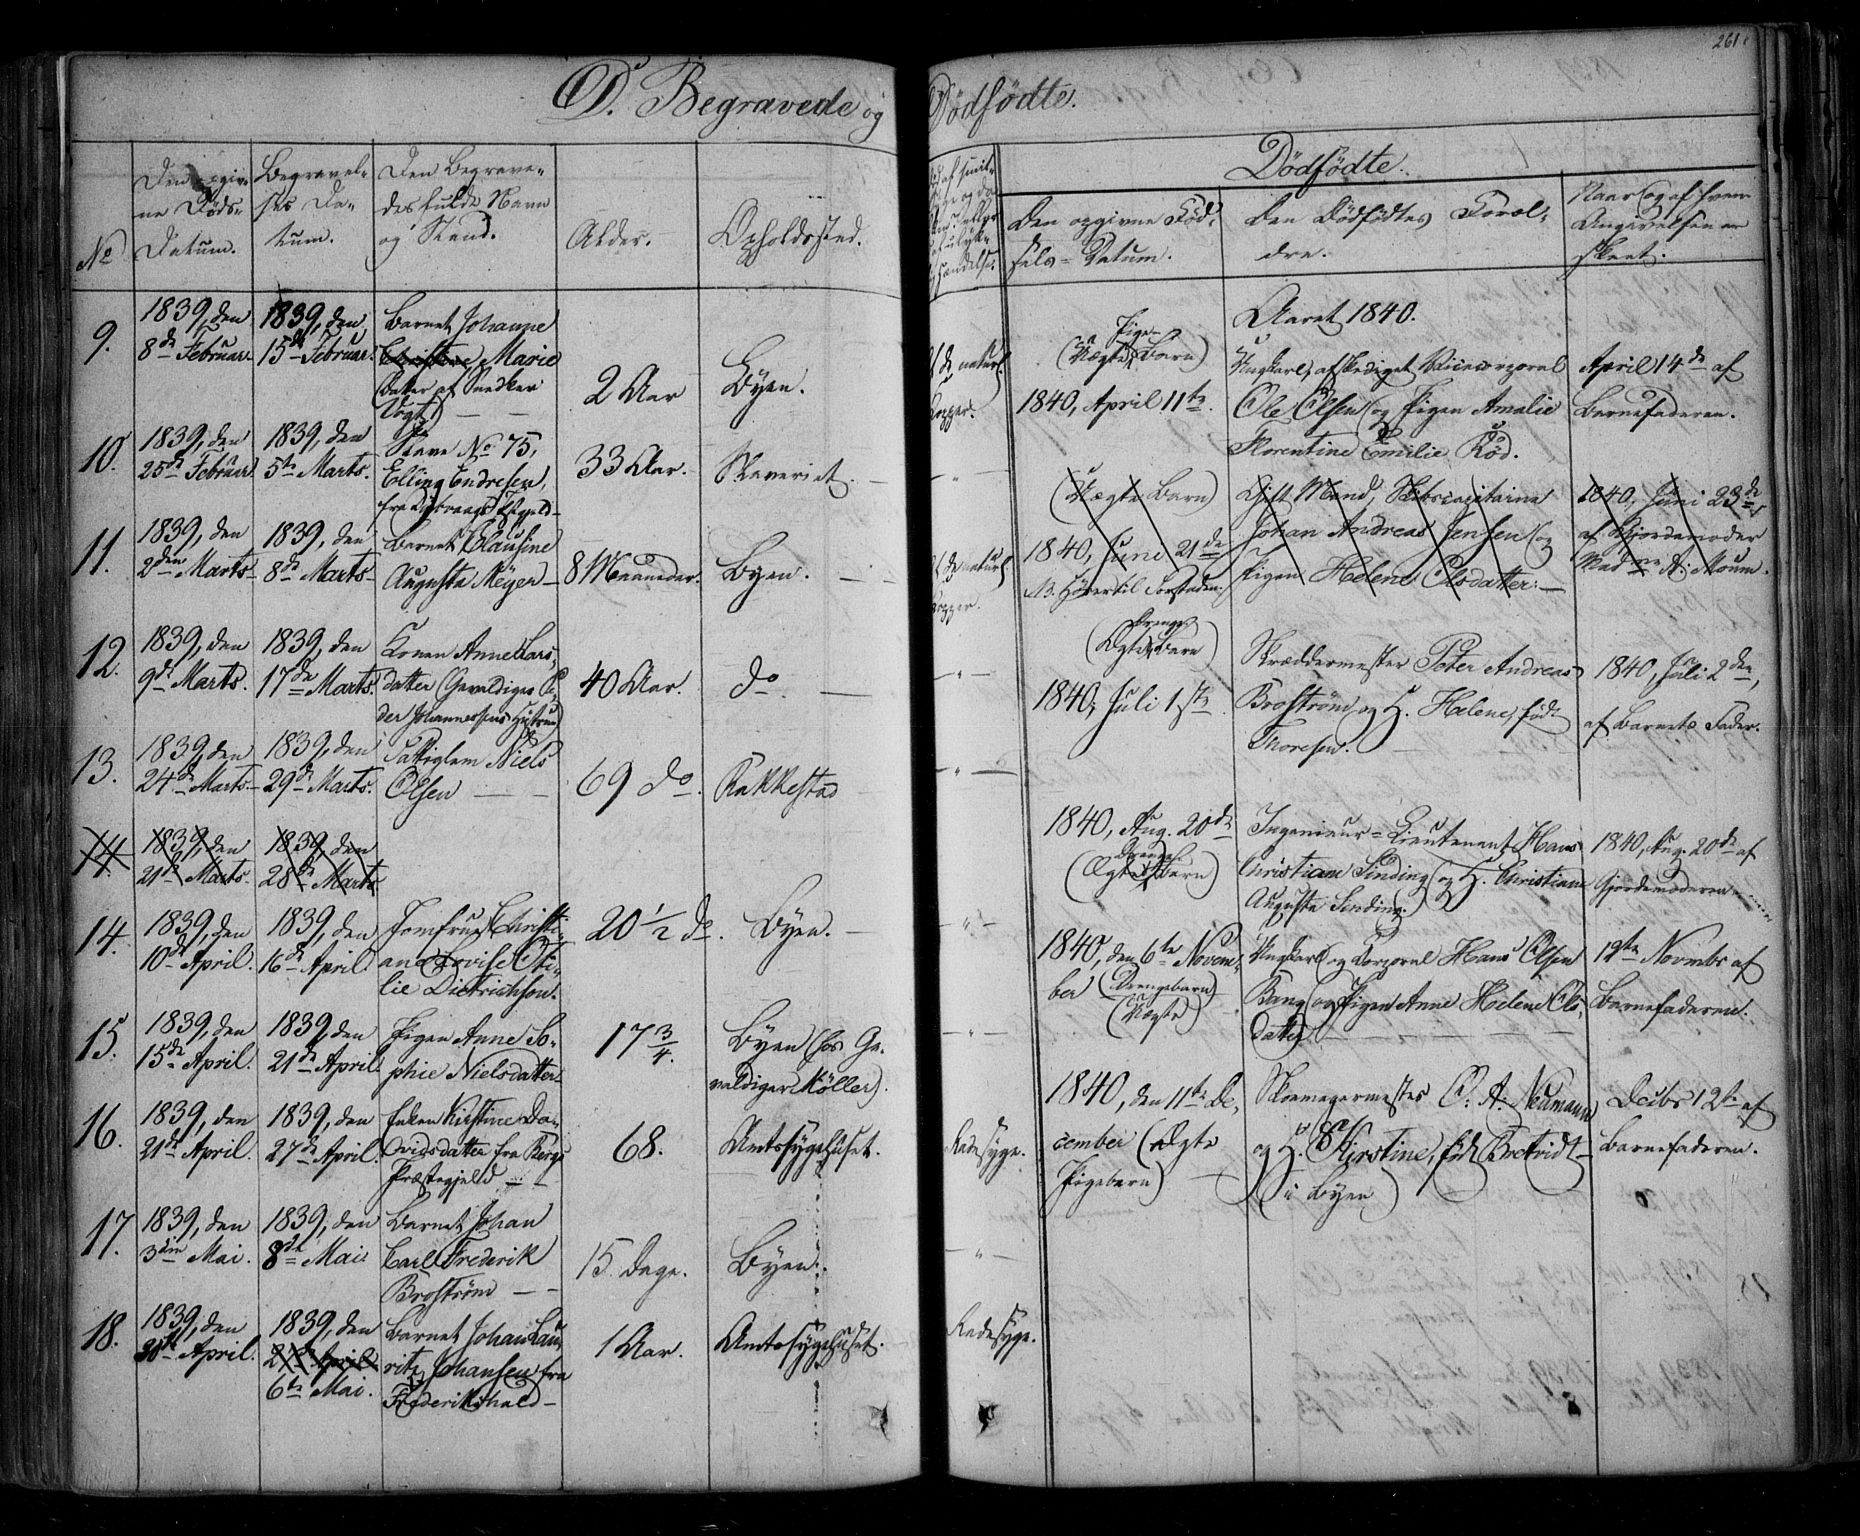 261
D. Begravede og Dödfödte.
No
Den opgiv-
ne Döds-
Datum.
Begravel-
ses Da-
tum.
Den Begrave-
des fulde Navn
og Stand.
Alder.
Opholdssted.
9.
1839, den
8de Februar.
1839, den
15de Februar.
Barnet Johanne
Christine Marie
(Datter af Snedker
Vogt) — —
2 Aar
Byen.
10.
1839, den
25de Februar
1839, den
5te Marts.
Slave No 75,
Elling Endresen,
33 Aar.
Slaveriet. —
11.
1839, den
2den Marts
1839, den
8de Marts
Barnet Clausine
Augusta Meyer —
8 Maaneder.
Byen. —
12.
1839, den
9de Marts.
1839, den
17de Marts.
Konen Anne Lars-
datter (Gevaldiger Pe-
der Johannessens Hustrue)
40 Aar.
do —
13.
1839, den
24de Marts.
1839, den
29de Marts.
Fattiglem Niels
Olsen — —
69 do.
Rakkestad
14.
1839, den
21de Marts.
1839, den
28de Marts
14.
1839, den
10de April.
1839, den
16de April.
Jomfrue Christi-
ane Lovise Oti-
lie Dietrichson.
20 1/2 do.
Byen. —
15.
1839, den
15de April.
1839, den
21de April.
Pigen Anne So-
phie Nielsdatter
17 3/4.
Byen (hos Ge-
valdiger Möller).
16.
1839, den
21de April.
1839, den
27de April.
Enken Kirstine Da-
vidsdatter fra Bergs
Præstegjeld — —
68.
Amtssygehuset.
Radesyge.
17.
1839, den
3den Mai.
1839, den
8de Mai.
Barnet Johan
Carl Frederik
Broström — —
15 Dage.
Byen.
18.
1839, den
30te April.
1839, den
April.
6te Mai.
Barnet Johan Lau-
ritz Johansen fra
Frederikshald —
1 Aar.
Amtssygehuset.
Radesyge.
de naturl.
Kopper.
de naturl.
Kopper.
Dödfödte.
Den opgivne Föd-
sels-Datum.
Den Dödfödtes Foræl-
dre.
Naar og af hvem
Angivelsen er
skeet.
Aaret 1840.
Pige-
(Uægte Barn)
1840, April 11te.
Ungkarl, afskediget Corporal
Ole Olsen og Pigen Amalie
Florentine Emilie Röd.
April 14de af
Barnefaderen.
(Uægte Barn)
1840, Juni 21de
NB. Hörer til Forstaden.
Gift Mand, Skibscapitaine
Johan Andreas Jensen og
Pigen Helene Olsdatter. —
1840, Juni 23de
af Gjordemoder
Mad. A. Moum.
Drenge-
(Ægte Barn)
1840, Juli 1ste
Skræddermester Peter Andreas
Broström og H. Helene, född
Thoresen. —
1840, Juli 2den,
af Barnets Fader.
1840, Aug. 20de
Drenge-
(Ægte Barn)
Ingenieur-Lieutenant Hans
Christian Sinding og H. Christiane
Augusta Sinding.
1840, Aug. 20de af
Gjordemoderen
1840, den 6te Novem-
ber (Drengebarn)
(Uægte)
Ungkarl og Corporal Hans Olsen
Bang og Pigen Anne Helene Ols-
datter —
12te Novmbr af
Barnefaderen.
1840, den 11te De-
cember (Ægte
Pigebarn) —
Skomagermester O. A. Neumann
og H. Kirstine, född
(i Byen)
Decbr 12te af
Barnefaderen.